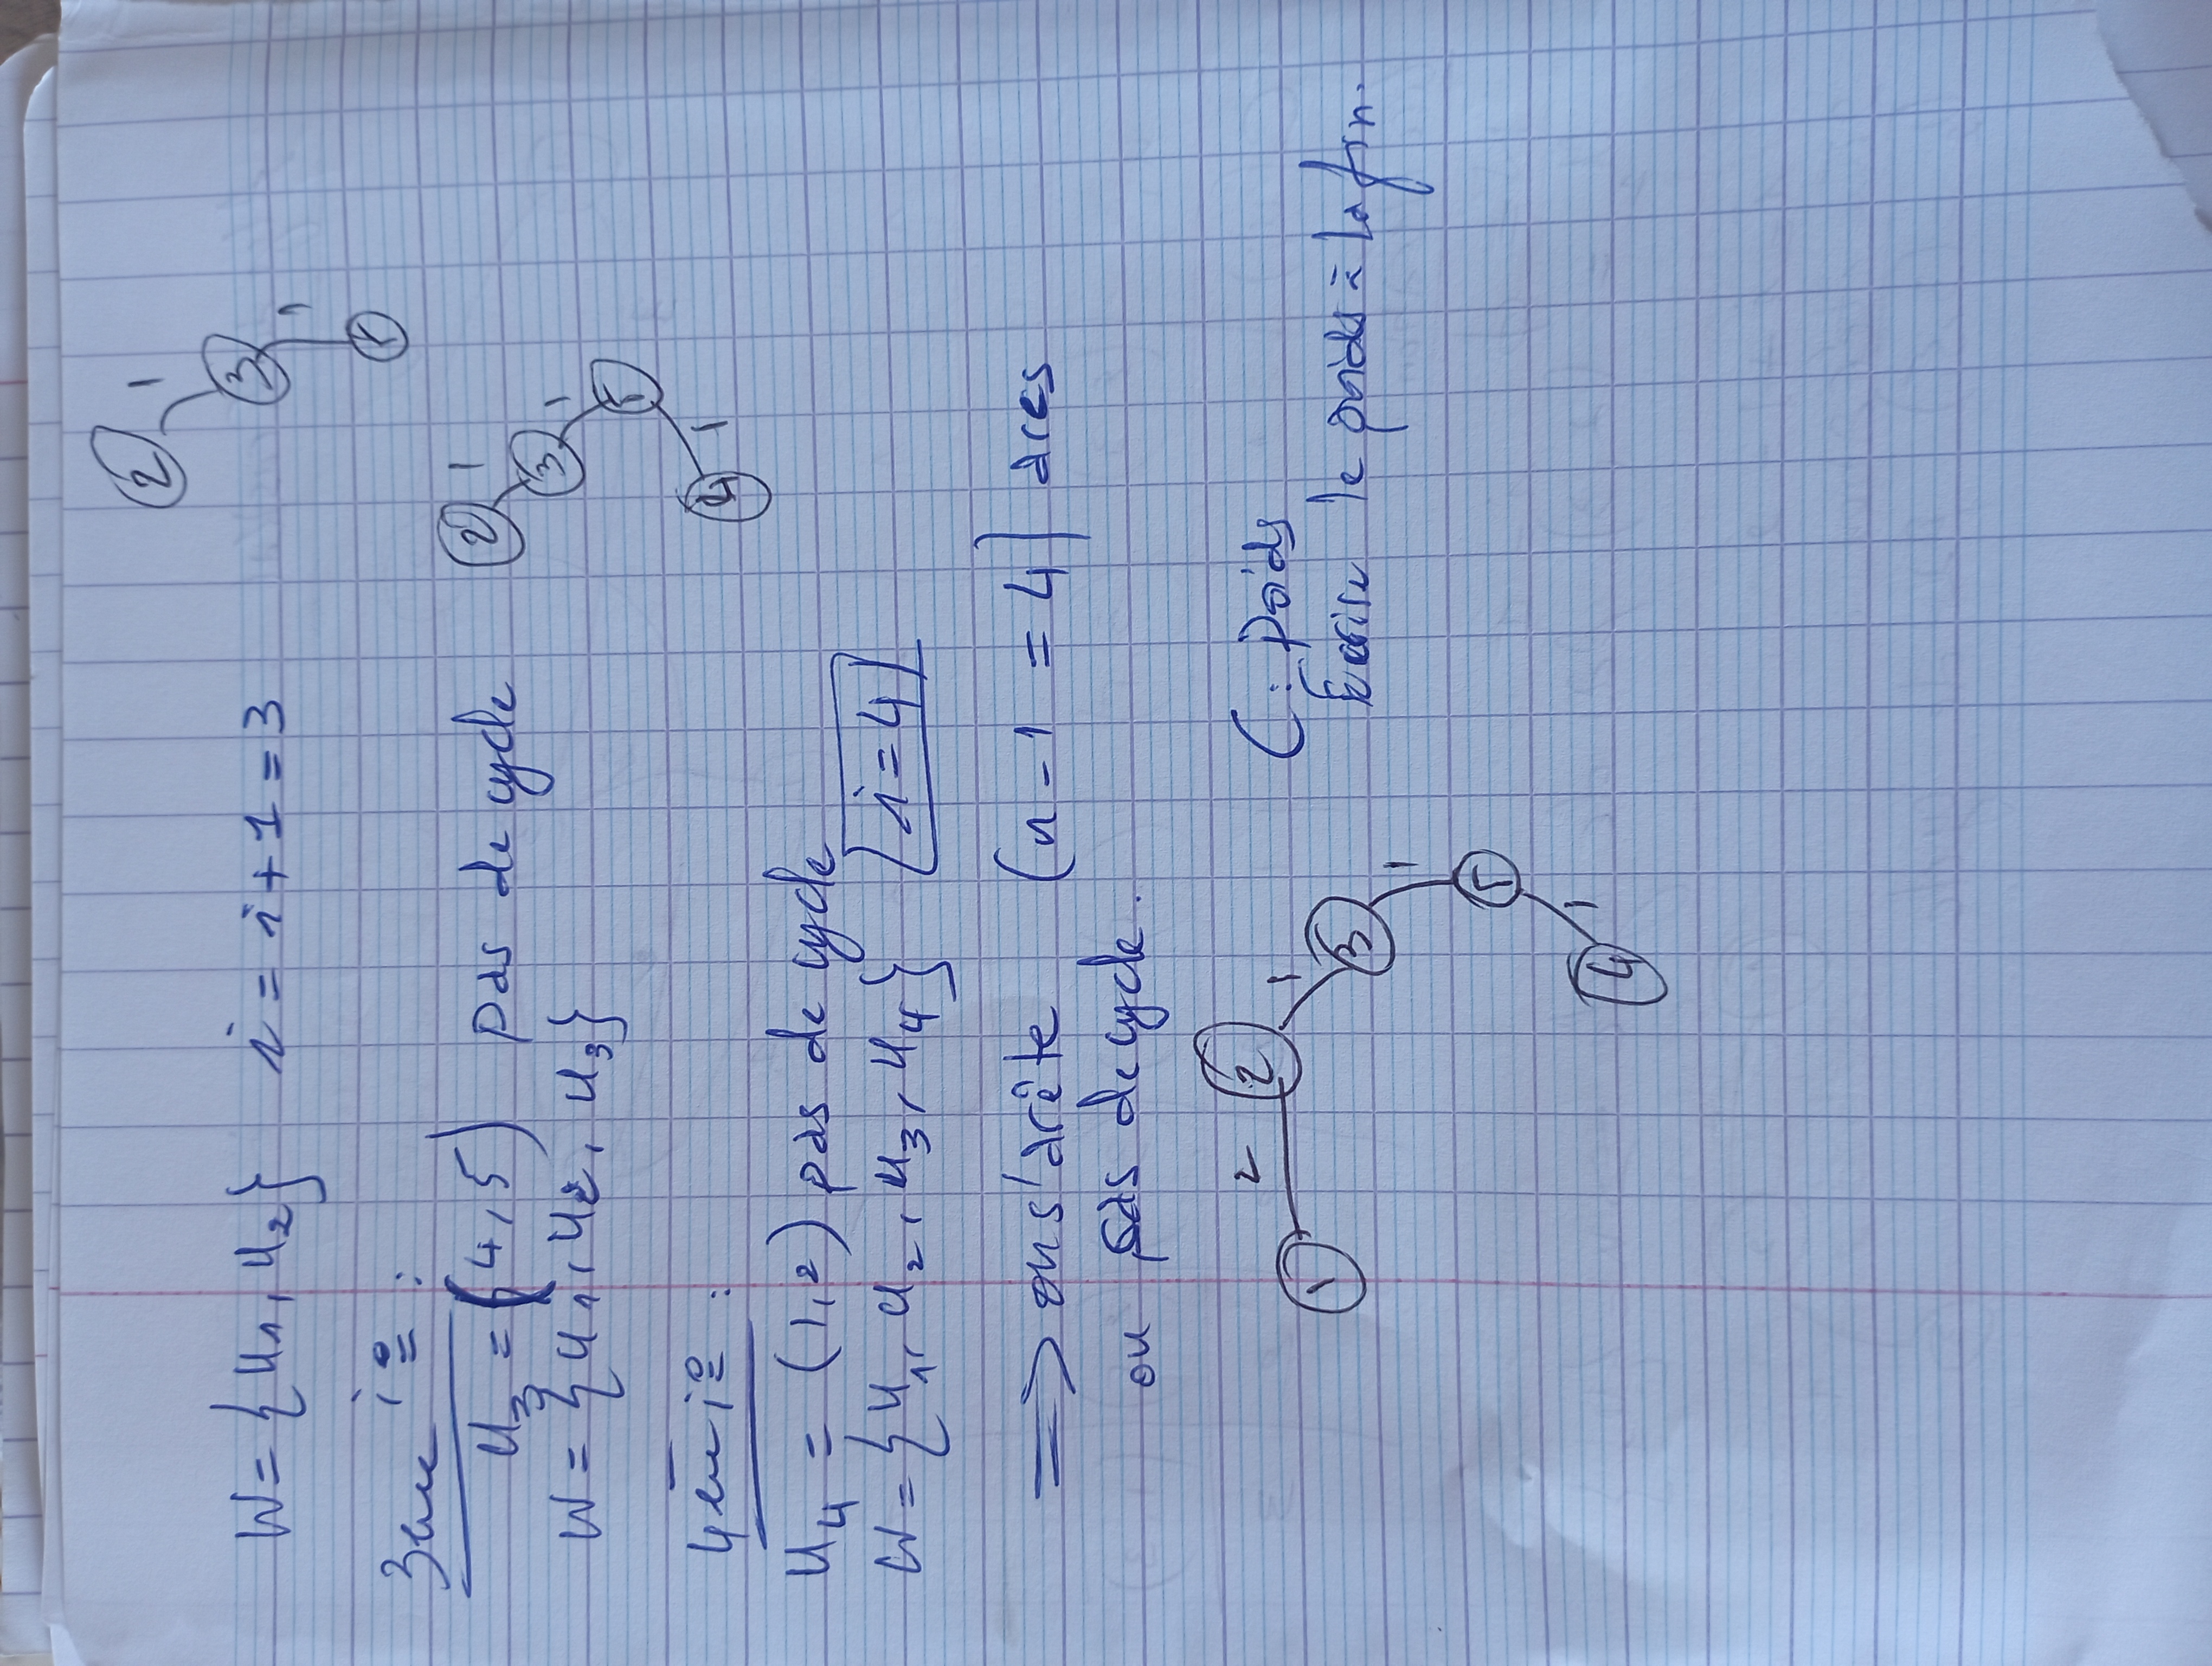 W = {u1, u2} i = i + 1 = 3
2 1
3
1
5
3eme i° :
u3 = (4, 5) pas de cycle
W = {u1, u2, u3}
2 1
3 1
5
4 1
4eme i° :
u4 = (1, 2) pas de cycle
W = {u1, u2, u3, u4} [i = 4]
=> on s'arête (n - 1 = 4) arcs
ou pas de cycle.
1 2 2
1
3
1
5
1
4
C : poids
Ecrire le poids à la fin.